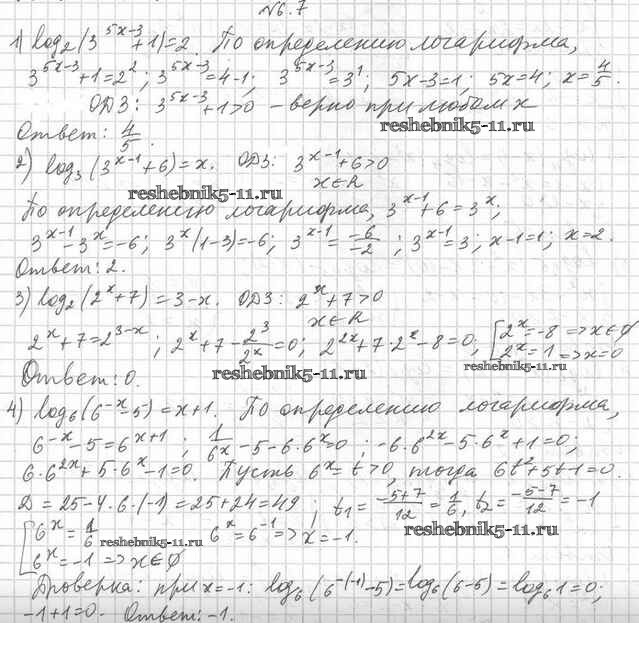 №6.7
1) log₂(3^(5x-3)+1)=2. По определению логарифма,
3^(5x-3)+1=2²; 3^(5x-3)=4-1; 3^(5x-3)=3¹; 5x-3=1; 5x=4; x=4/5.
ОДЗ: 3^(5x-3)+1>0 – верно при любом x
reshebnik5-11.ru
Ответ: 4/5.
2) log₃(3^(x-1)+6)=x. ОДЗ: 3^(x-1)+6>0
x∈R
reshebnik5-11.ru
По определению логарифма, 3^(x-1)+6=3^x;
3^(x-1)-3^x=-6; 3^x(1-3)=-6; 3^(x-1)=-6/-2; 3^(x-1)=3; x-1=1; x=2.
Ответ: 2.
3) log₂(2^x+7)=3-x. ОДЗ: 2^x+7>0
x∈R
2^x+7=2^(3-x); 2^x+7-2³/2^x=0; 2^(2x)+7·2^x-8=0; [2^x=-8 =>x∈∅
2^x=1 =>x=0
reshebnik5-11.ru
reshebnik5-11.ru
Ответ: 0.
4) log₆(6^(-x)-5)=x+1. По определению логарифма,
6^(-x)-5=6^(x+1); 1/6^x-5-6·6^x=0; -6·6^(2x)-5·6^x+1=0;
6·6^(2x)+5·6^x-1=0. Пусть 6^x=t>0, тогда 6t²+5t-1=0.
D=25-4·6·(-1)=25+24=49; t₁=(-5+7)/12=1/6, t₂=(-5-7)/12=-1
[6^x=1/6 6^x=6^(-1)=>x=-1.
reshebnik5-11.ru
reshebnik5-11.ru
6^x=-1=>x∈∅
Проверка: при x=-1: log₆(6^(-(-1))-5)=log₆(6-5)=log₆1=0;
-1+1=0. Ответ: -1.
reshebnik5-11.ru